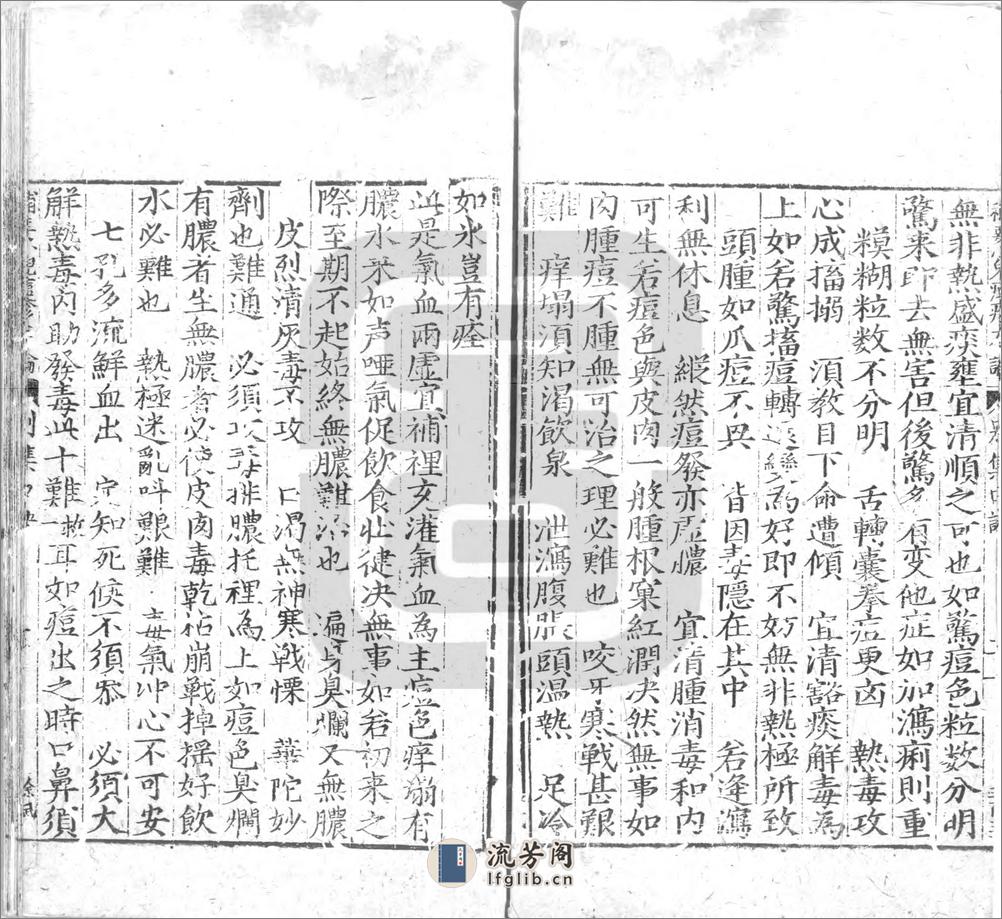 無非熱盛痰壅宜清順之可也如驚痘色粒數分明
驚來即去無害但後驚多有變他症如加瀉痢則重
糢糊粒数不分明 舌轉囊拳痘更凶 熱毒攻
心成搐搦 須教目下命遭傾 宜清豁痰解毒為
上如若驚搐痘轉為好即不妨無非熱極所致
頭腫如瓜痘不異 皆因毒隱在其中 若逢瀉
利無休息 縱然痘發亦虛膿 宜清腫消毒和内
可生若痘色與皮肉一般腫根窠紅潤决然無事如
肉腫痘不腫無可治之理必難也 咬牙寒戰甚艱
難 痒塌須知渴飲泉 泄瀉腹脹頭温熱 足冷
如氷豈有痊
此是氣血兩虛宜補裡灌氣血為主痘色痒塌有
膿水來如声啞氣促飲食壯健决無事如若初来之
際至期不起始終無膿難治也 遍身臭爛又無膿
皮烈清灰毒不攻 口渴無神寒戰慄 華陀妙
劑也難通 必須排膿托裡為上如痘色臭爛
有膿者生無膿者必皮肉毒乾枯崩戰掉摇好飲
水必難也 熱極迷亂呌艱難 毒氣冲心不可安
七孔多流鮮血出 定知死候不須參 必須大
解熱毒内助發毒此十難救一耳如痘出之時口鼻須
余氏
流芳阁
lfglib.cn